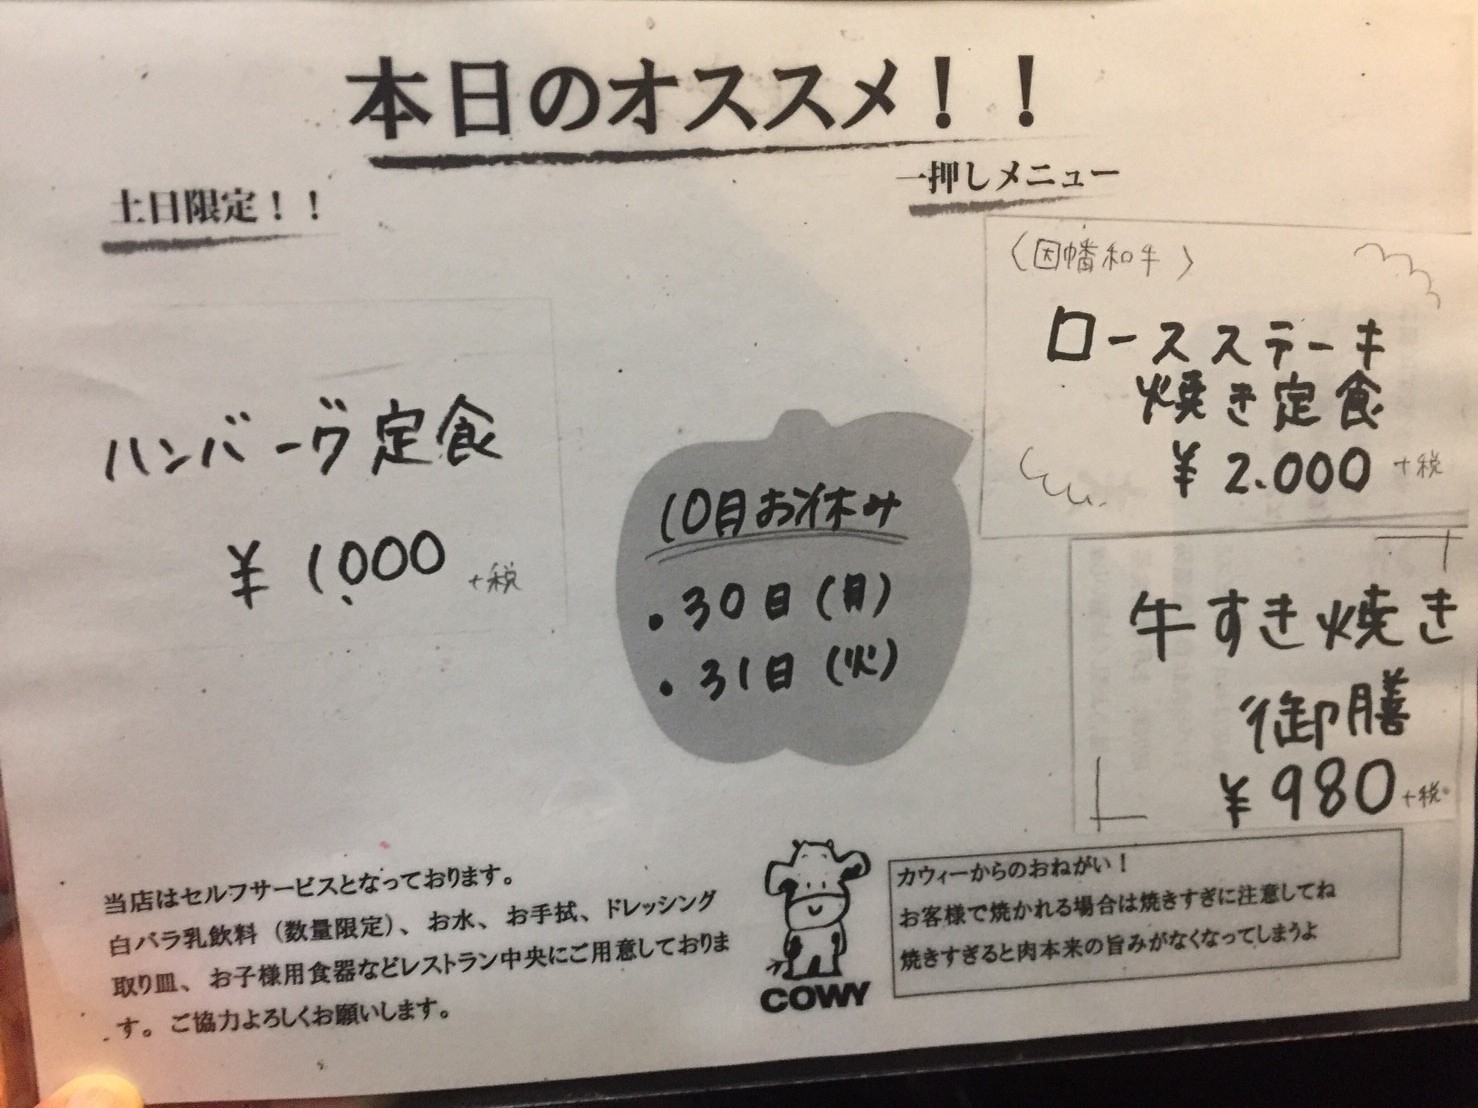 本日のオススメ！！
土日限定！！
ハンバーグ定食
¥1,000 +税
一押しメニュー
〈因幡和牛〉
ロースステーキ
焼き定食
¥2.000 +税
牛すき焼き
御膳
¥980 +税
10月お休み
・30日(月)
・31日(火)
当店はセルフサービスとなっております。
白バラ乳飲料（数量限定）、お水、お手拭、ドレッシング
取り皿、お子様用食器などレストラン中央にご用意しておりま
す。ご協力よろしくお願いします。
COWY
カウィーからのおねがい！
お客様で焼かれる場合は焼きすぎに注意してね
焼きすぎると肉本来の旨みがなくなってしまうよ